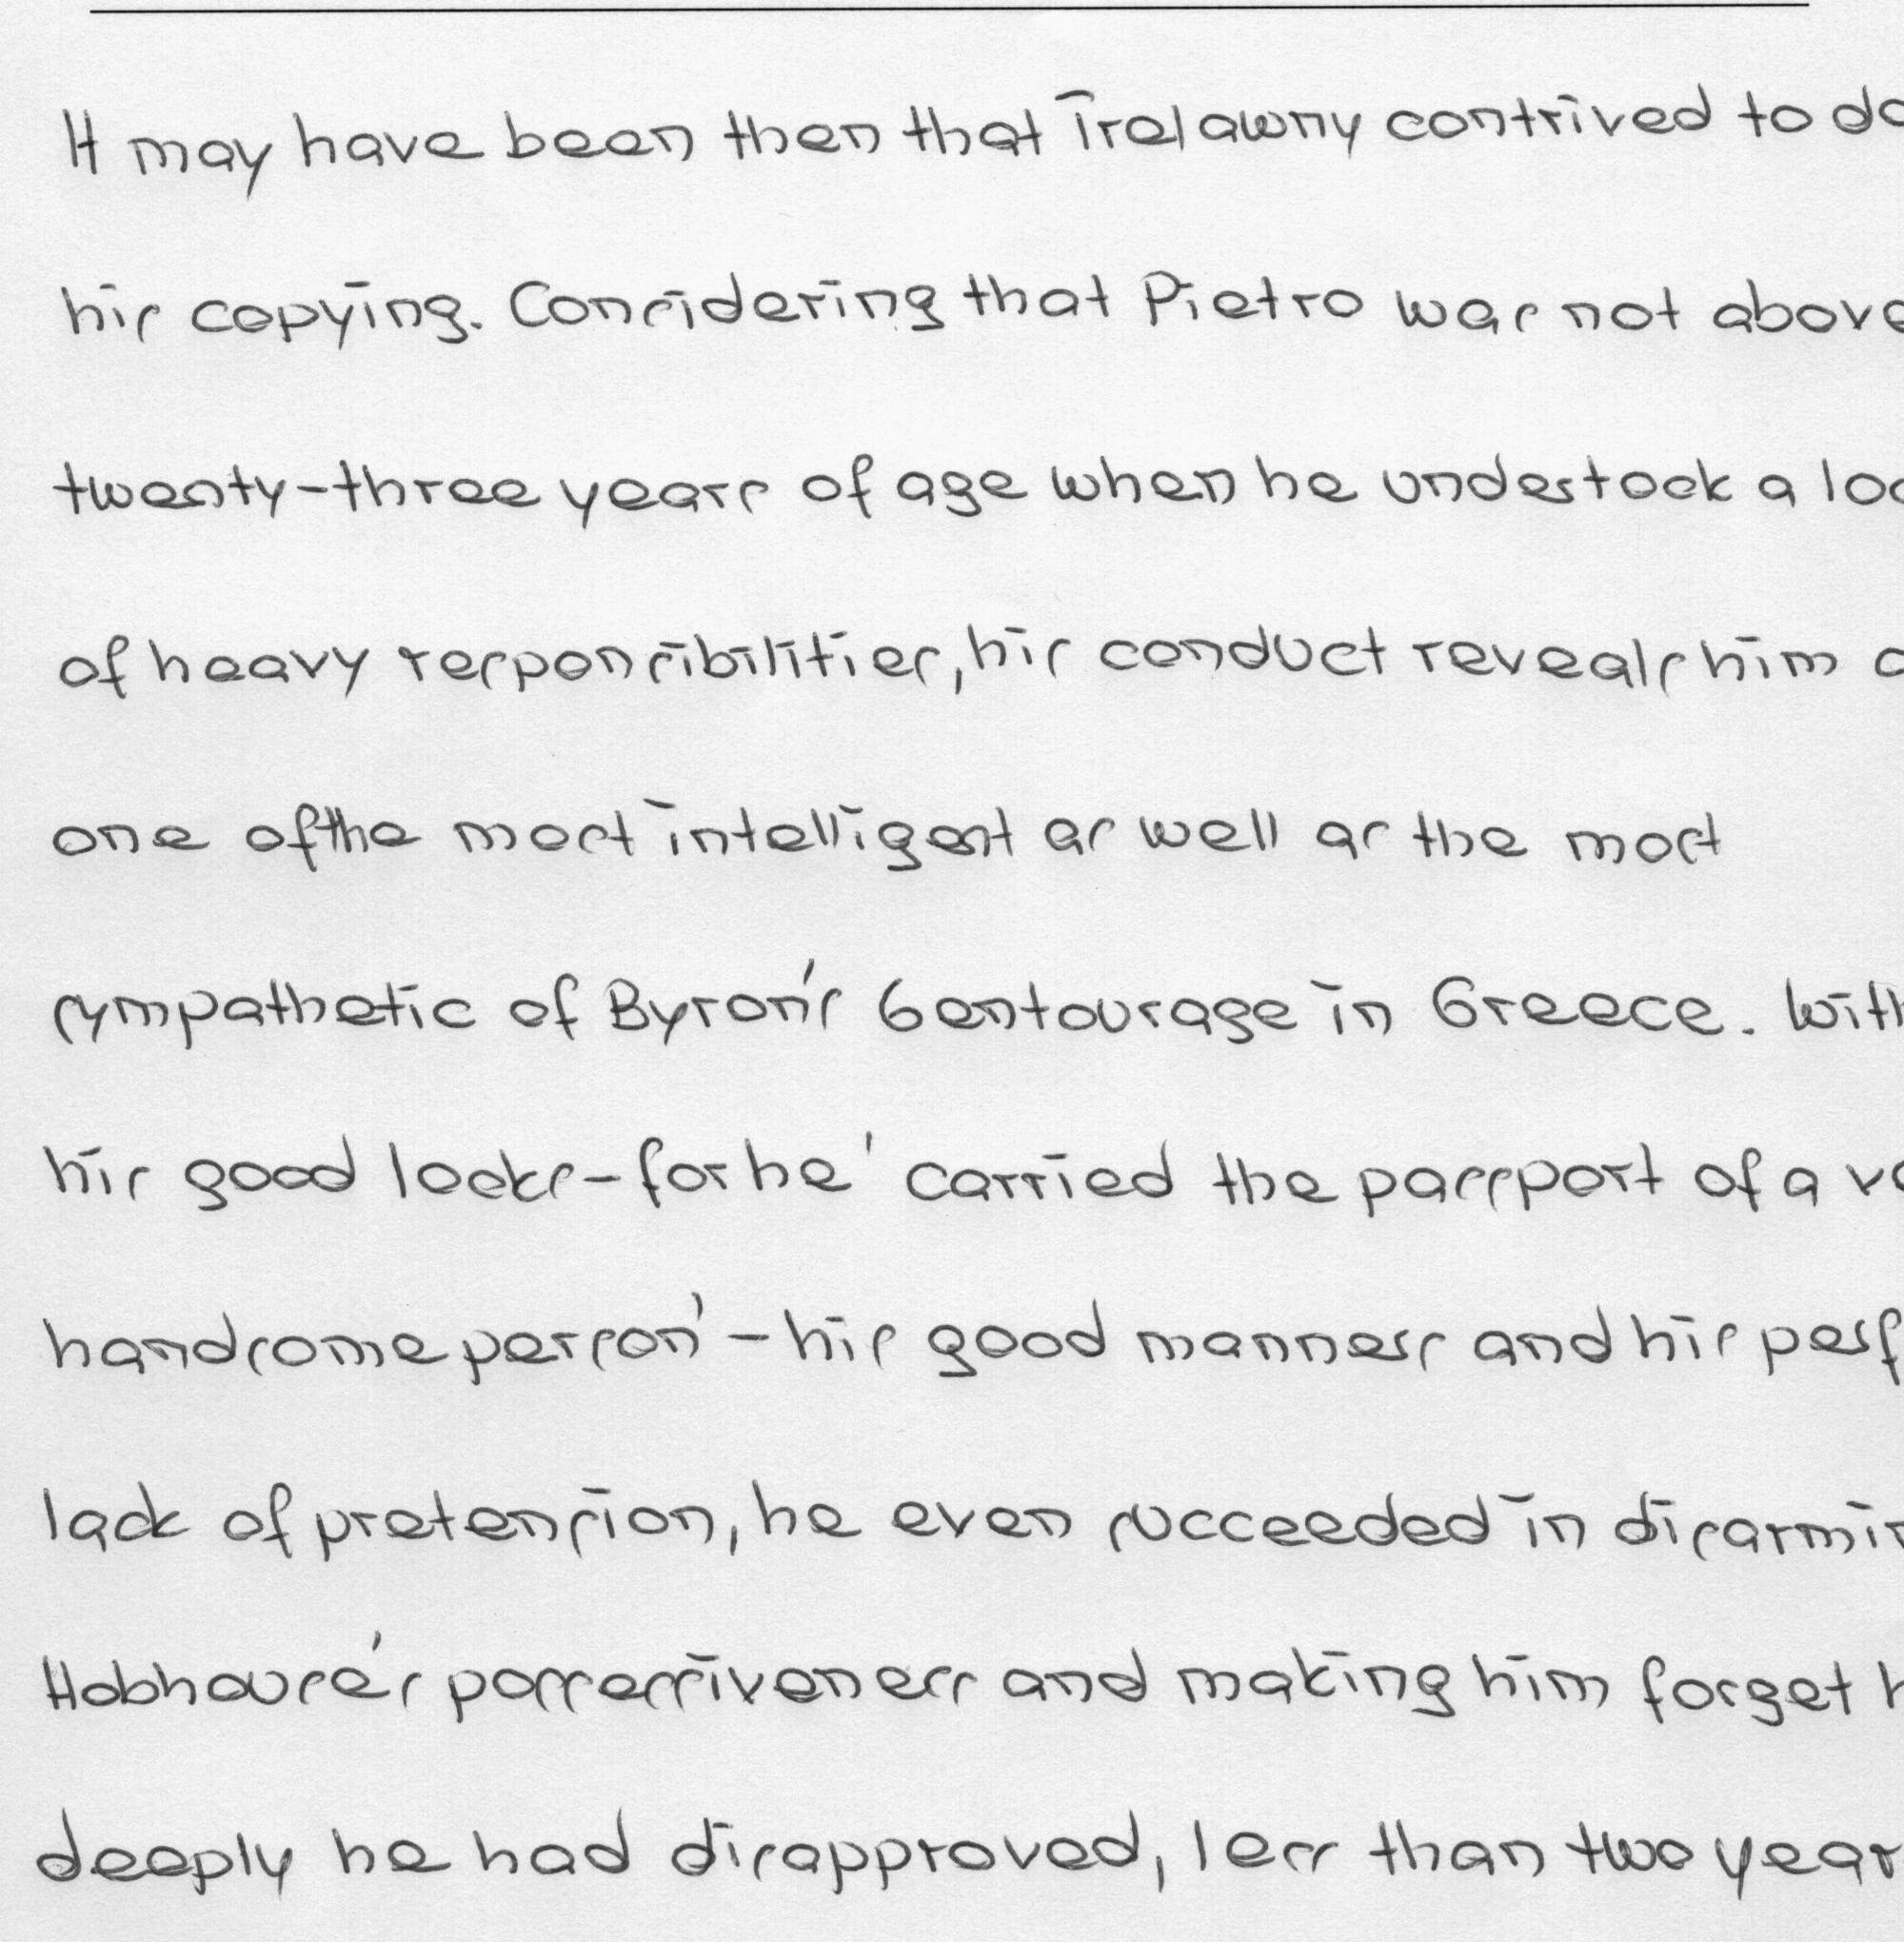 It may have been then that Trelawny contrived to do
his copying. Considering that Pietro was not above
twenty-three years of age when he undertook a
of heavy responsibilities, his conduct reveals him
one of the most intelligent as well as the most
sympathetic of Byron's 6entourage in Greece. With
his good looks - for he ' carried the passport of a
handsome person' - his good manners and his
lack of pretension, he even succeeded in
Hobhouse's possessiveness and making him forget
deeply he had disapproved, less than two